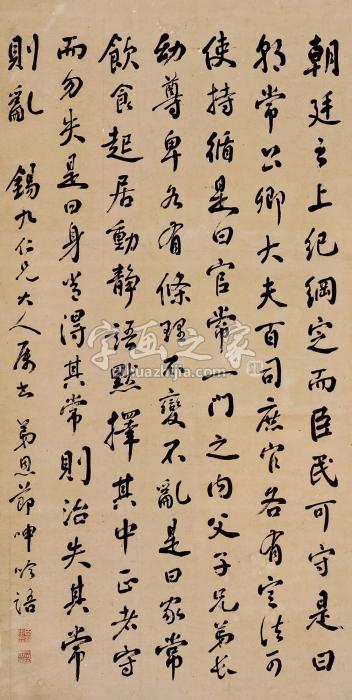 朝廷之上紀綱定而臣民可守是曰
朝常公卿大夫百司庶官各有定法可
使持循是曰官常一門之內父子兄弟長
幼尊卑各有條理不變不亂是曰家常
飲食起居動靜語默擇其中正者守
而勿失是曰身常得其常則治失其常
則亂
錫九仁兄大人属書 弟恩節呻吟語
字画之家
huazhijia.com